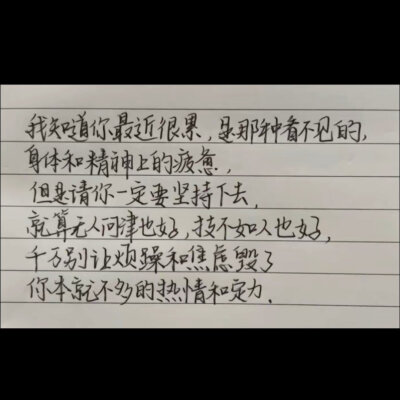 我知道你最近很累，是那种看不见的，
身体和精神上的疲惫，
但是请你一定要坚持下去，
就算无人问津也好，技不如人也好，
千万别让烦躁和焦虑毁了
你本就不多的热情和定力。